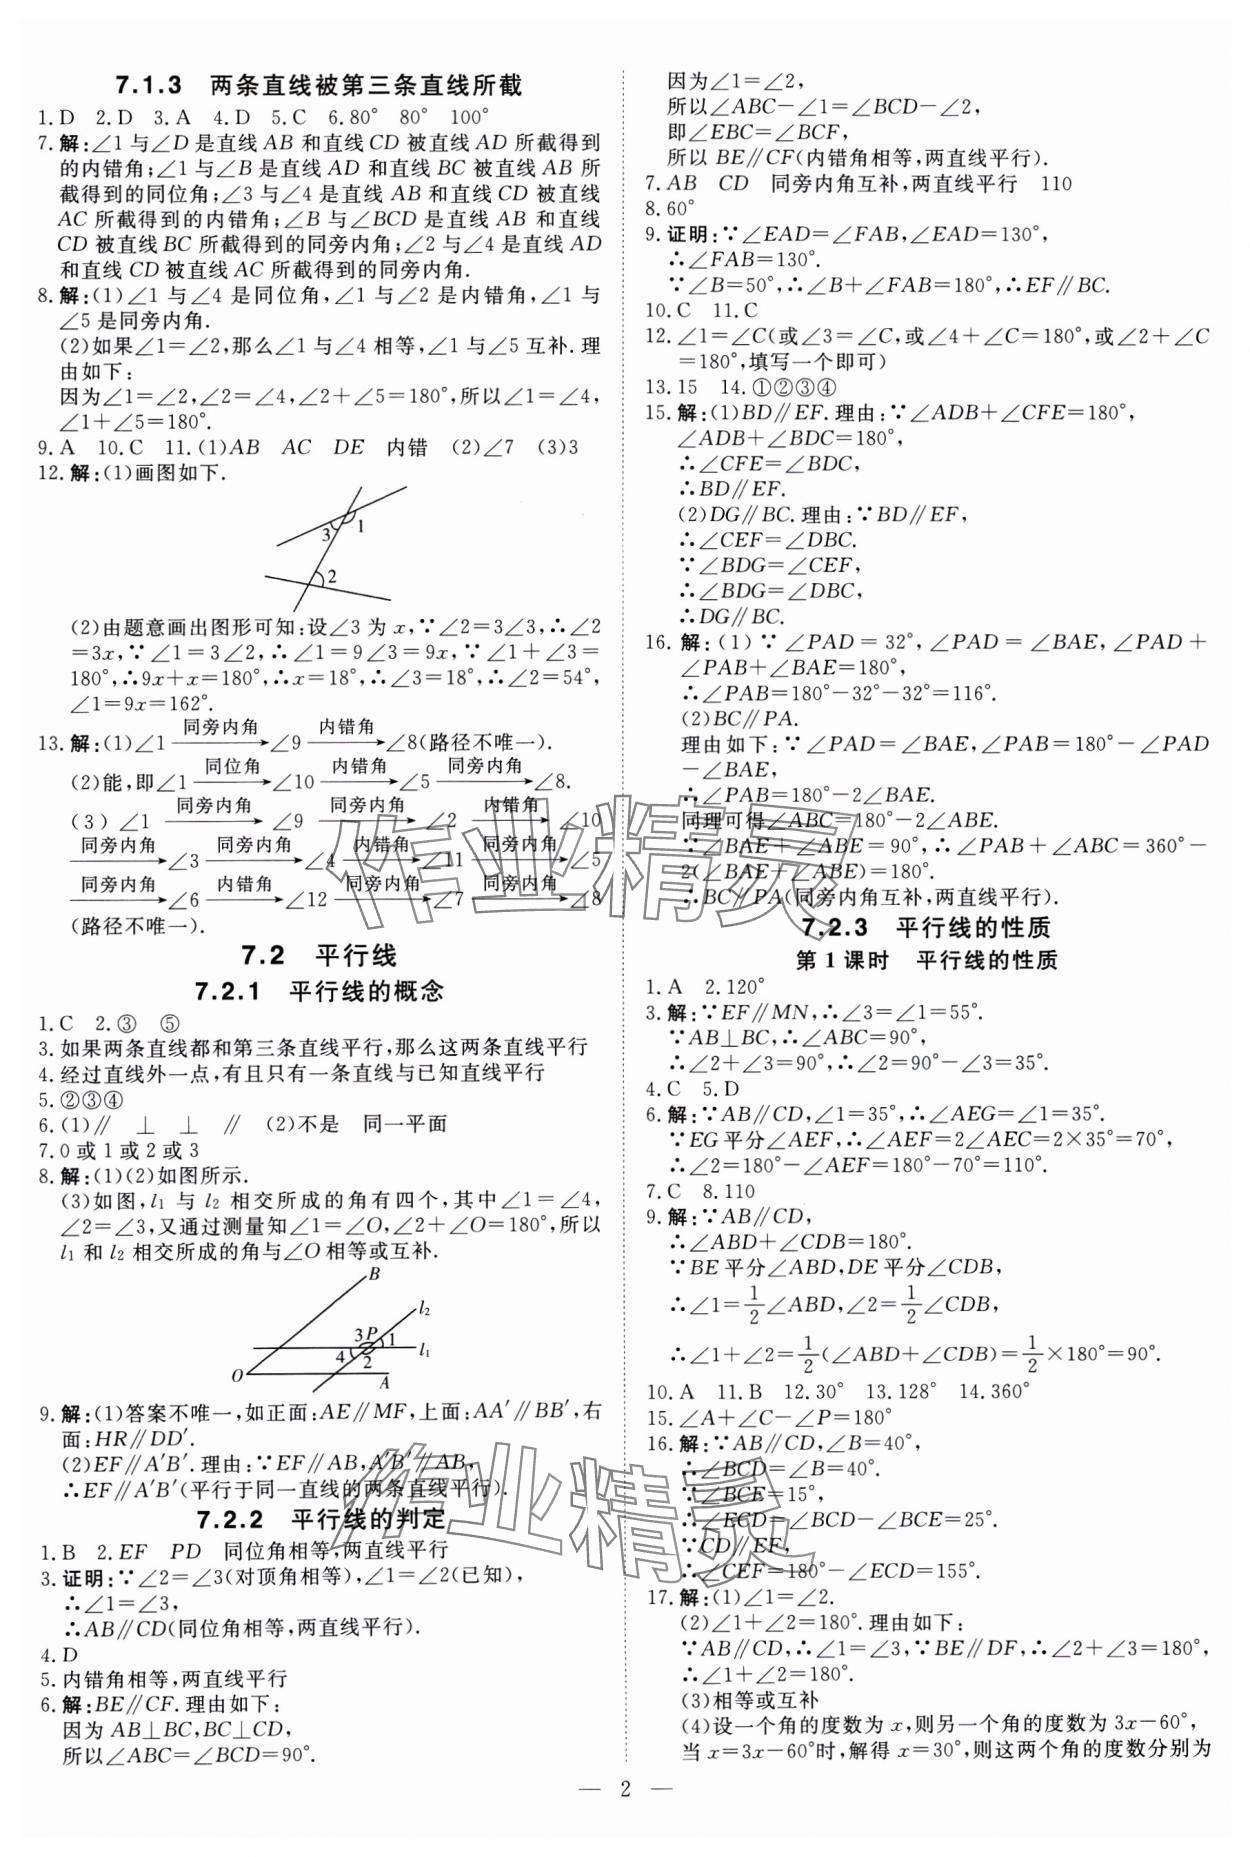 7.1.3 两条直线被第三条直线所截
1.D 2.D 3.A 4.D 5.C 6.80° 80° 100°
7.解:∠1与∠D是直线AB和直线CD被直线AD所截得到
的内错角;∠1与∠B是直线AD和直线BC被直线AB所
截得到的同位角;∠3与∠4是直线AB和直线CD被直线
AC所截得到的内错角;∠B与∠BCD是直线AB和直线
CD被直线BC所截得到的同旁内角;∠2与∠4是直线AD
和直线CD被直线AC所截得到的同旁内角.
8.解:(1)∠1与∠4是同位角,∠1与∠2是内错角,∠1与
∠5是同旁内角.
(2)如果∠1=∠2,那么∠1与∠4相等,∠1与∠5互补.理
由如下:
因为∠1=∠2,∠2=∠4,∠2+∠5=180°,所以∠1=∠4,
∠1+∠5=180°.
9.A 10.C 11.(1)AB AC DE 内错 (2)∠7 (3)3
12.解:(1)画图如下.
3 1
2
(2)由题意画出图形可知:设∠3为x,∵∠2=3∠3,∴∠2
=3x,∵∠1=3∠2,∴∠1=9∠3=9x,∵∠1+∠3=
180°,∴9x+x=180°,∴x=18°,∴∠3=18°,∴∠2=54°,
∠1=9x=162°.
13.解:(1)∠1 同旁内角→ ∠9 内错角→ ∠8(路径不唯一).
(2)能,即∠1 同位角→ ∠10 内错角→ ∠5 同旁内角→ ∠8.
(3)∠1 同旁内角→ ∠9 同旁内角→ ∠2 内错角→ ∠10
同旁内角→ ∠3 同旁内角→ ∠4 内错角→ ∠11 同旁内角→ ∠5
同旁内角→ ∠6 内错角→ ∠12 同旁内角→ ∠7 同旁内角→ ∠8
(路径不唯一).
7.2 平行线
7.2.1 平行线的概念
1.C 2.③ ⑤
3.如果两条直线都和第三条直线平行,那么这两条直线平行
4.经过直线外一点,有且只有一条直线与已知直线平行
5.②③④
6.(1)∥ ⊥ ⊥ ∥ (2)不是 同一平面
7.0或1或2或3
8.解:(1)(2)如图所示.
(3)如图,l₁与l₂相交所成的角有四个,其中∠1=∠4,
∠2=∠3,又通过测量知∠1=∠O,∠2+∠O=180°,所以
l₁和l₂相交所成的角与∠O相等或互补.
B
l₂
3 P 1
l₁
4 2
O A
9.解:(1)答案不唯一,如正面:AE∥MF,上面:AA′∥BB′,右
面:HR∥DD′.
(2)EF∥A′B′.理由:∵EF∥AB,A′B′∥AB,
∴EF∥A′B′(平行于同一直线的两条直线平行).
7.2.2 平行线的判定
1.B 2.EF PD 同位角相等,两直线平行
3.证明:∵∠2=∠3(对顶角相等),∠1=∠2(已知),
∴∠1=∠3,
∴AB∥CD(同位角相等,两直线平行).
4.D
5.内错角相等,两直线平行
6.解:BE∥CF.理由如下:
因为AB⊥BC,BC⊥CD,
所以∠ABC=∠BCD=90°.
因为∠1=∠2,
所以∠ABC-∠1=∠BCD-∠2,
即∠EBC=∠BCF,
所以BE∥CF(内错角相等,两直线平行).
7.AB CD 同旁内角互补,两直线平行 110
8.60°
9.证明:∵∠EAD=∠FAB,∠EAD=130°,
∴∠FAB=130°.
∵∠B=50°,∴∠B+∠FAB=180°,∴EF∥BC.
10.C 11.C
12.∠1=∠C(或∠3=∠C,或∠4+∠C=180°,或∠2+∠C
=180°,填写一个即可)
13.15 14.①②③④
15.解:(1)BD∥EF.理由:∵∠ADB+∠CFE=180°,
∠ADB+∠BDC=180°,
∴∠CFE=∠BDC,
∴BD∥EF.
(2)DG∥BC.理由:∵BD∥EF,
∴∠CEF=∠DBC.
∵∠BDG=∠CEF,
∴∠BDG=∠DBC,
∴DG∥BC.
16.解:(1)∵∠PAD=32°,∠PAD=∠BAE,∠PAD+
∠PAB+∠BAE=180°,
∴∠PAB=180°-32°-32°=116°.
(2)BC∥PA.
理由如下:∵∠PAD=∠BAE,∠PAB=180°-∠PAD
-∠BAE,
∴∠PAB=180°-2∠BAE.
同理可得∠ABC=180°-2∠ABE.
∵∠BAE+∠ABE=90°,∴∠PAB+∠ABC=360°-
2(∠BAE+∠ABE)=180°.
∴BC∥PA(同旁内角互补,两直线平行).
7.2.3 平行线的性质
第1课时 平行线的性质
1.A 2.120°
3.解:∵EF∥MN,∴∠3=∠1=55°.
∵AB⊥BC,∴∠ABC=90°,
∴∠2+∠3=90°,∴∠2=90°-∠3=35°.
4.C 5.D
6.解:∵AB∥CD,∠1=35°,∴∠AEG=∠1=35°.
∵EG平分∠AEF,∴∠AEF=2∠AEC=2×35°=70°,
∴∠2=180°-∠AEF=180°-70°=110°.
7.C 8.110
9.解:∵AB∥CD,
∴∠ABD+∠CDB=180°.
∵BE平分∠ABD,DE平分∠CDB,
∴∠1=1/2∠ABD,∠2=1/2∠CDB,
∴∠1+∠2=1/2(∠ABD+∠CDB)=1/2×180°=90°.
10.A 11.B 12.30° 13.128° 14.360°
15.∠A+∠C-∠P=180°
16.解:∵AB∥CD,∠B=40°,
∴∠BCD=∠B=40°.
∵∠BCE=15°,
∴∠ECD=∠BCD-∠BCE=25°.
∵CD∥EF,
∴∠CEF=180°-∠ECD=155°.
17.解:(1)∠1=∠2.
(2)∠1+∠2=180°.理由如下:
∵AB∥CD,∴∠1=∠3,∵BE∥DF,∴∠2+∠3=180°,
∴∠1+∠2=180°.
(3)相等或互补
(4)设一个角的度数为x,则另一个角的度数为3x-60°,
当x=3x-60°时,解得x=30°,则这两个角的度数分别为
— 2 —
作业精灵
作业精灵